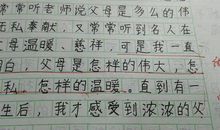 常听老师说父母是多么的伟
无私奉献，又常常听到名人在
父母温暖、慈祥，可是我一直
明白，父母是怎样的伟大，怎
私，怎样的温暖。直到有一
生后，我才感受到浓浓的父